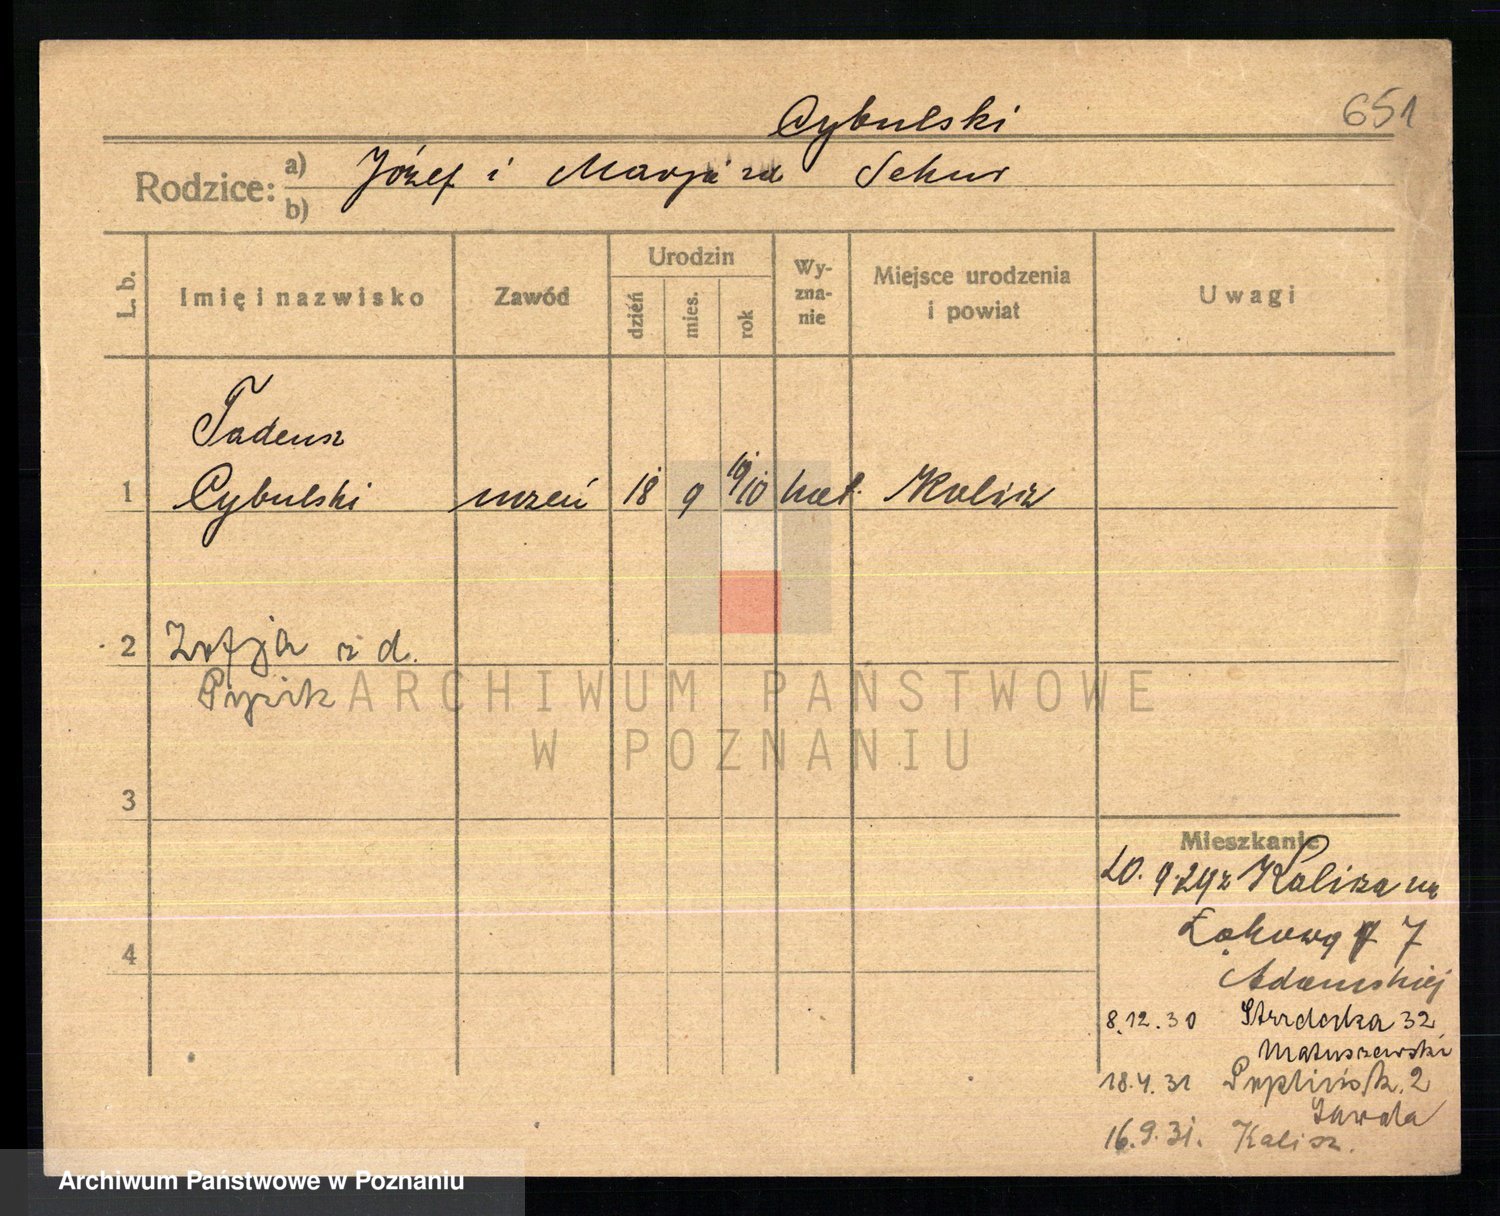 Cybulski
651
Rodzice: a) Józef i Marja zd Sekur
b)
L. b.
Imię i nazwisko
Zawód
Urodzin
dzień
mies.
rok
Wy-
zna-
nie
Miejsce urodzenia
i powiat
Uwagi
Tadeusz
1 Cybulski uczeń 18 9 1910 kat. Kalisz
2 Zofja z d.
Pyzik
ARCHIWUM PAŃSTWOWE
W POZNANIU
3
Mieszkanie
20. 9. 29 z Kalisza na
Łąkową 7
4
Adamskiej
8.12.30 Strzelecka 32
Matuszewski
18.4.31 2
Zawda
16.9.31. Kalisz.
Archiwum Państwowe w Poznaniu